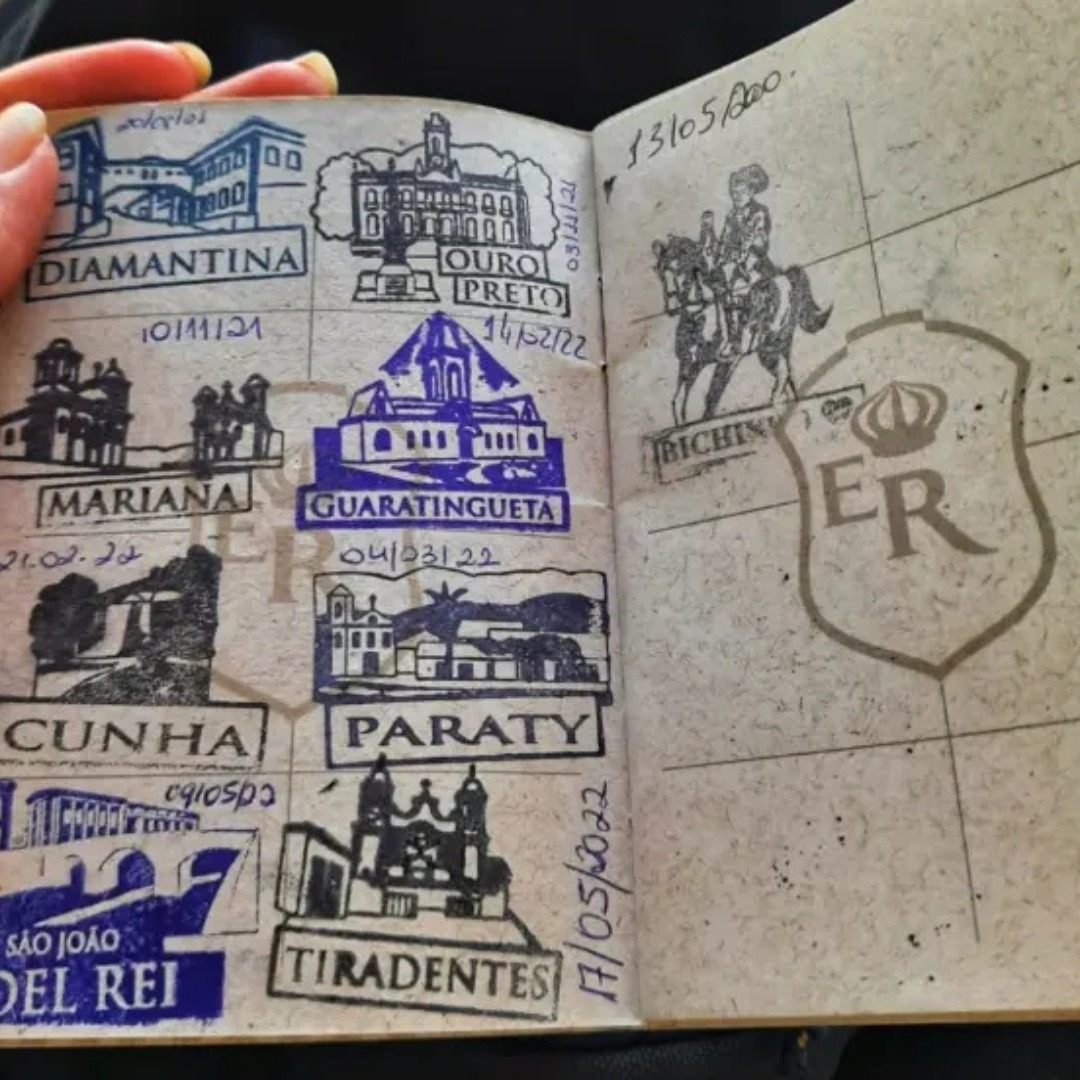 DIAMANTINA
03/11/21
OURO
PRETO
10/11/21
MARIANA
14/02/22
GUARATINGUETÁ
21.02.22
CUNHA
04/03/22
PARATY
SÃO JOÃO
DEL REI
17/05/2022
TIRADENTES
ER
13/05/
ER